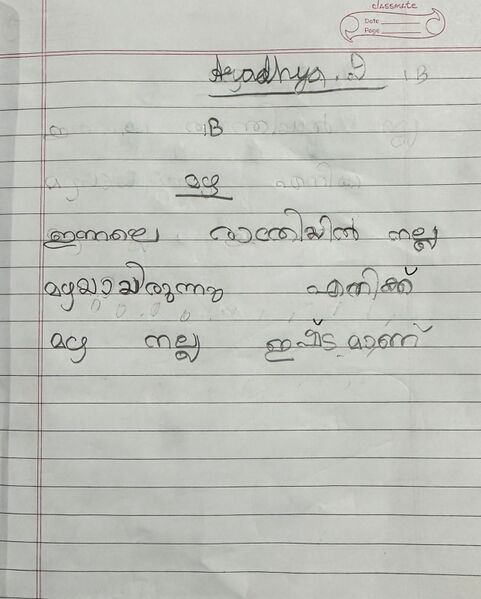 classmate
Date
Page
Aradhya. P 1B
1B
മഴ
ഇന്നലെ രാത്രിയിൽ നല്ല
മഴയായിരുന്നു എനിക്ക്
മഴ നല്ല ഇഷ്ടമാണ്